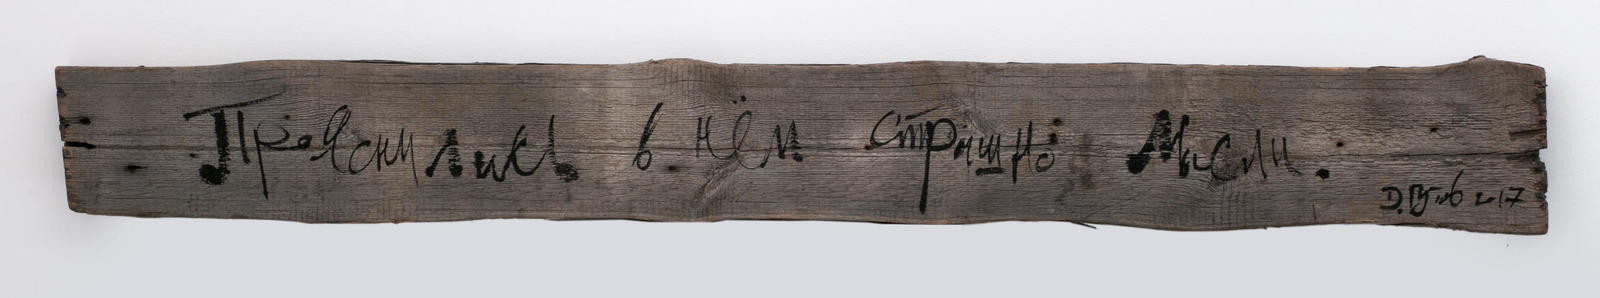 Прояснились в нём страшно мысли.
Д. 2017